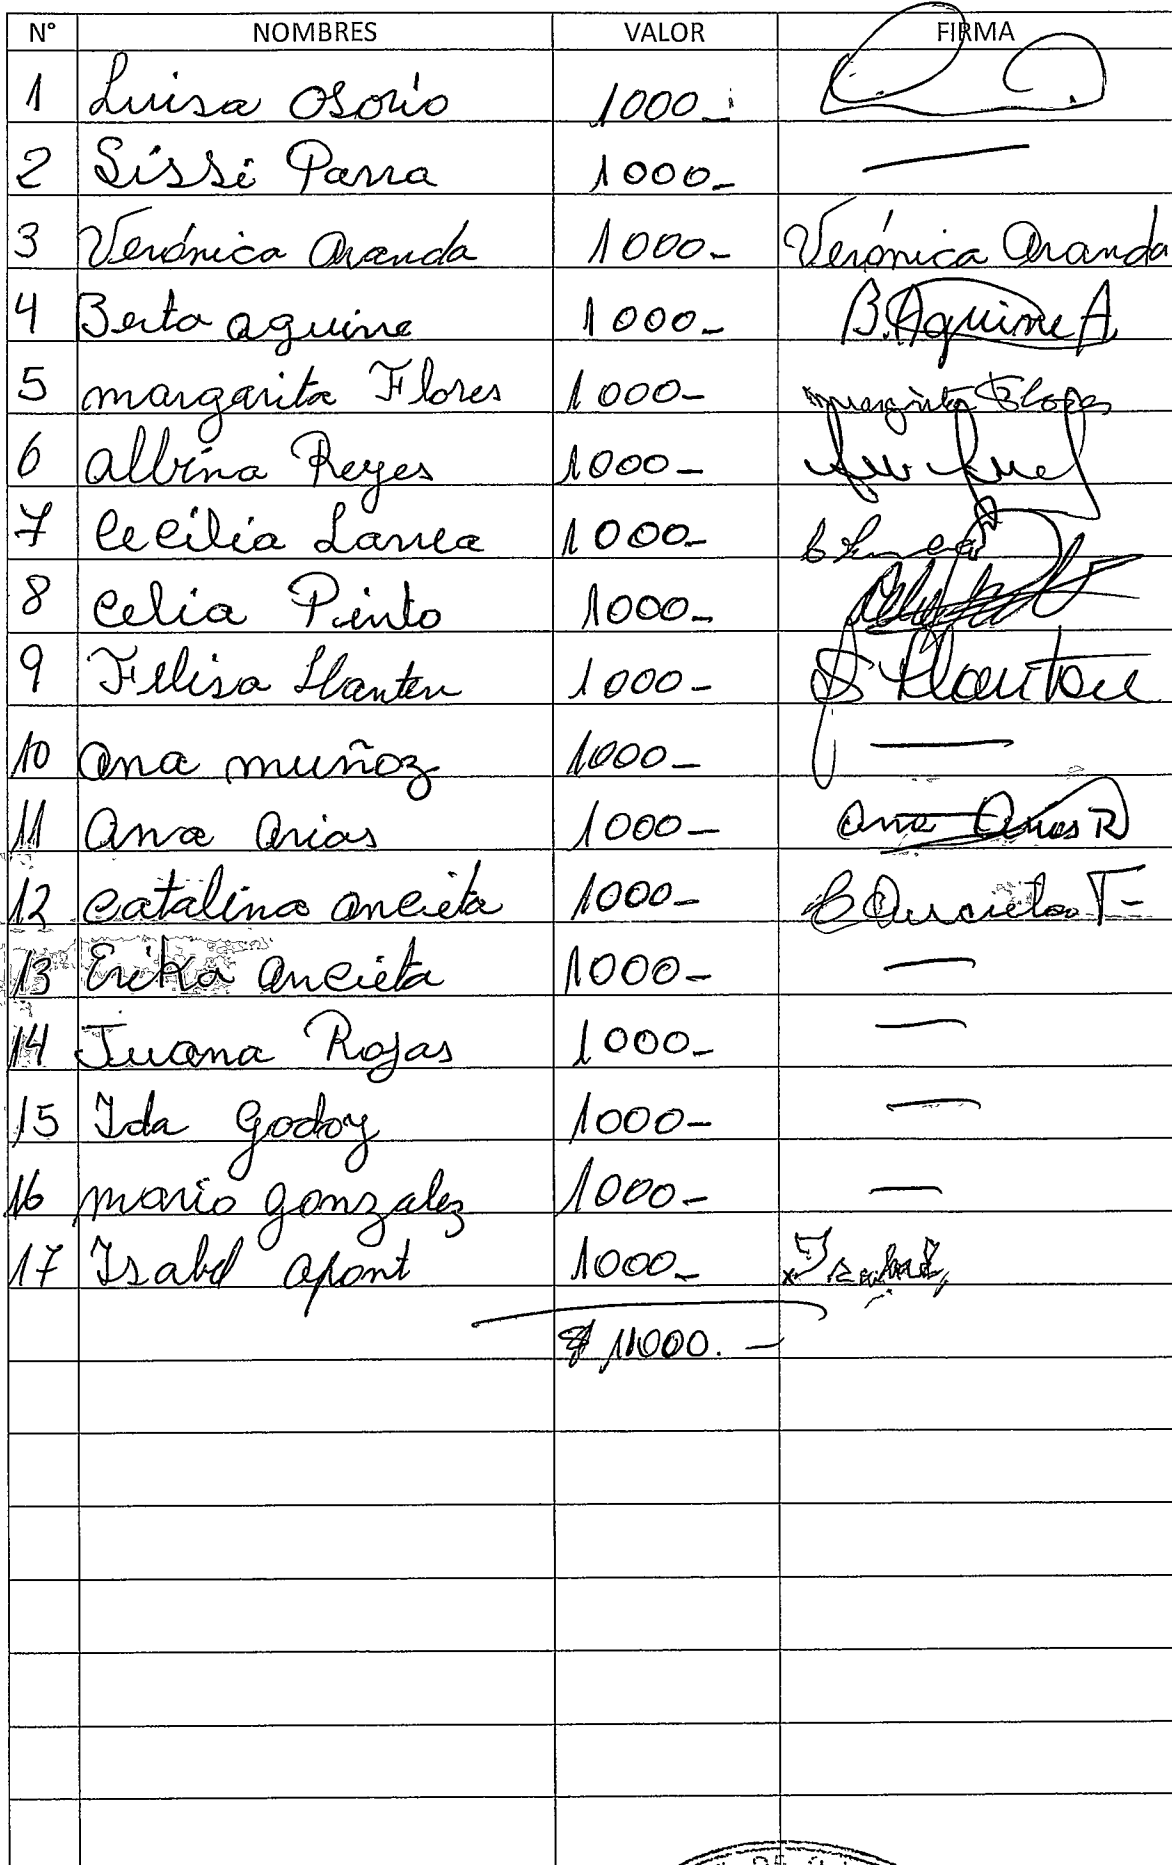 N° NOMBRES VALOR FIRMA
1 Luisa Osorio 1000.-
2 Sissi Parra 1000.- —
3 Verónica Aranda 1000.- Verónica Aranda
4 Berta aguirre 1000.- B. Aguirre A
5 margarita Flores 1000.- margarita Flores
6 albina Reyes 1000.-
7 Cecilia Larrea 1000.-
8 Celia Pinto 1000.-
9 Felisa Llanten 1000.- Llanten
10 ana muñoz 1000.- —
11 Ana Arias 1000.- Ana Arias R
12 Catalina ancieta 1000.- C Ancieta T-
13 Erika ancieta 1000.- —
14 Juana Rojas 1000.- —
15 Ida Godoy 1000.- —
16 mario gonzalez 1000.- —
17 Isabel apont 1000.- Isabel
$ 11000.-